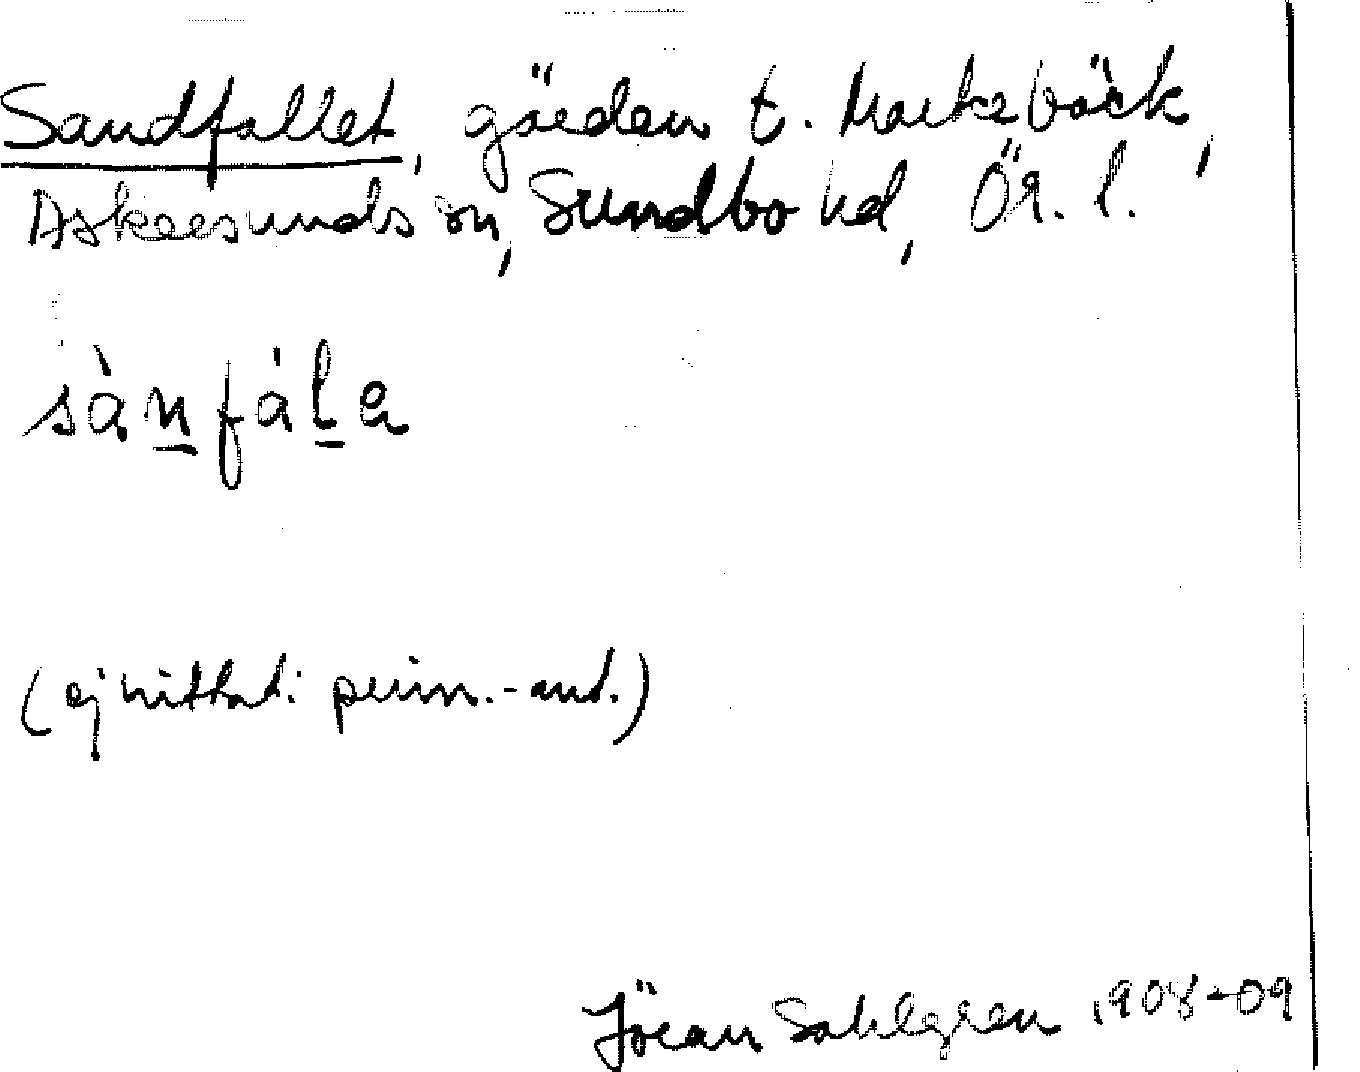 Sandfallet, gärden t. Marksbäck,
Askersunds sn, Sundbo hd, Ör. l.
sànfála
(ej hittat i prim.-ant.)
Jöran Sahlgren 1908-09